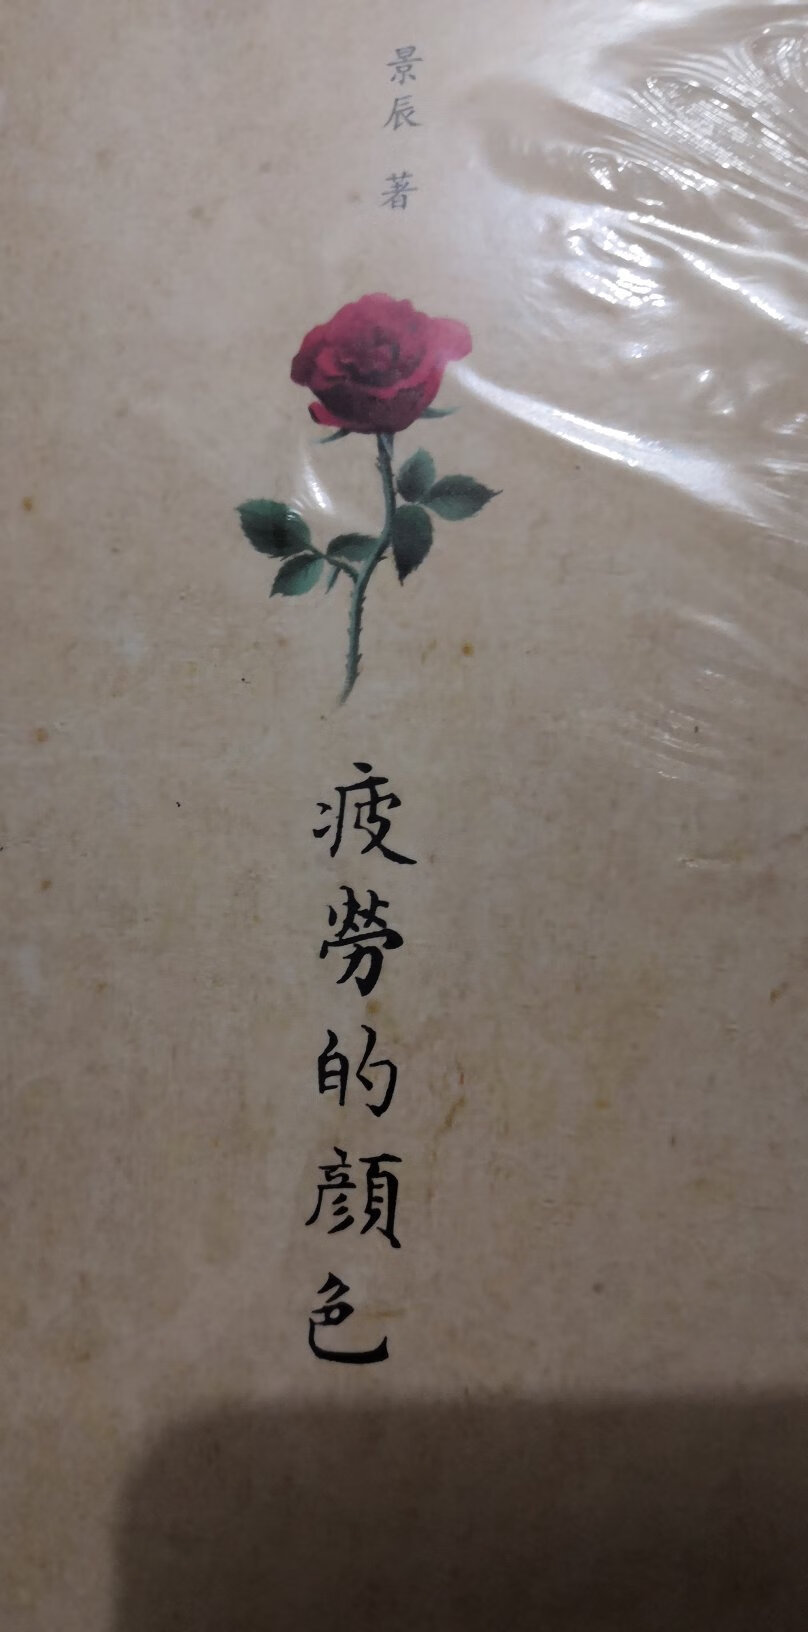 景辰 著
疲勞的顔色